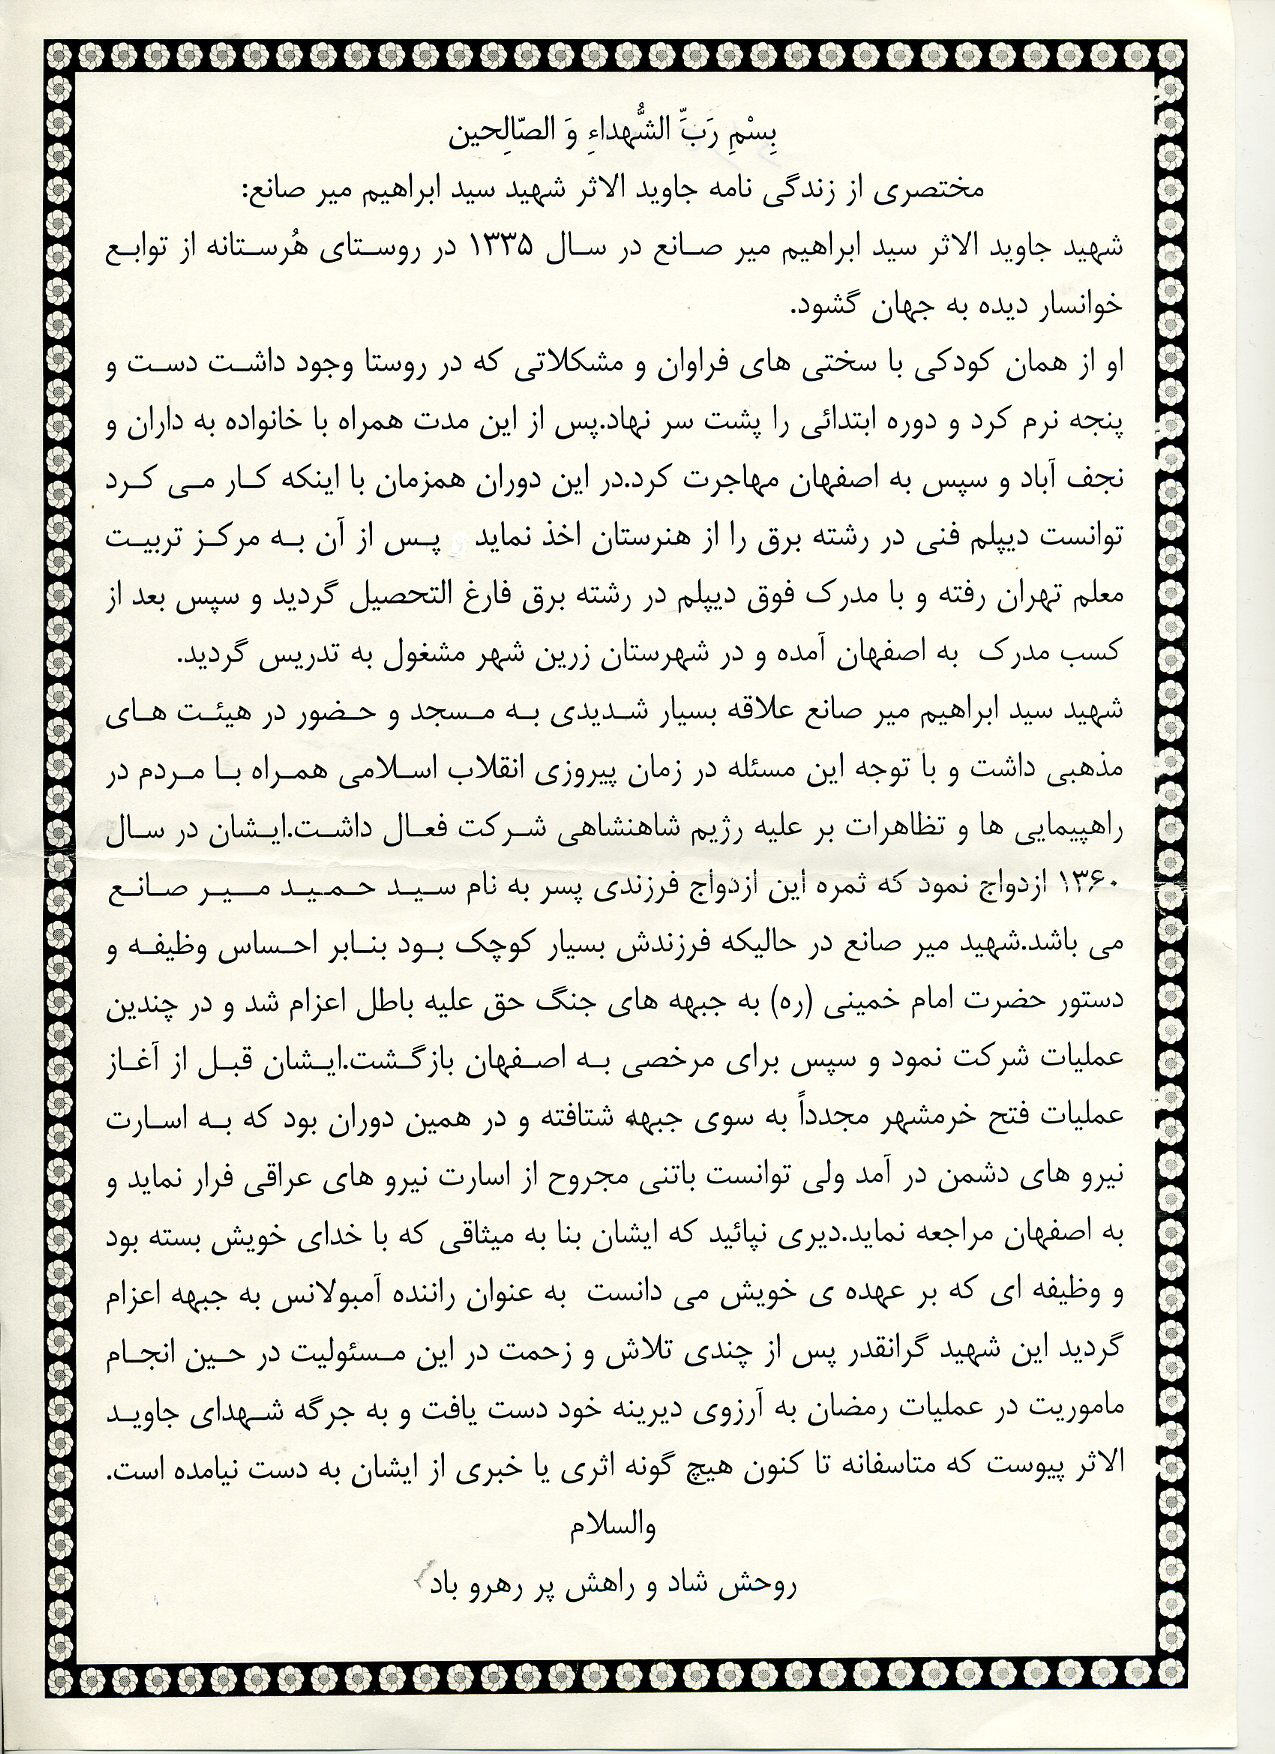 بِسْمِ رَبِّ الشُّهداءِ وَ الصّالِحین
مختصری از زندگی نامه جاوید الاثر شهید سید ابراهیم میر صانع:
شهید جاوید الاثر سید ابراهیم میر صانع در سال ۱۳۳۵ در روستای هُرستانه از توابع
خوانسار دیده به جهان گشود.
او از همان کودکی با سختی های فراوان و مشکلاتی که در روستا وجود داشت دست و
پنجه نرم کرد و دوره ابتدائی را پشت سر نهاد.پس از این مدت همراه با خانواده به داران و
نجف آباد و سپس به اصفهان مهاجرت کرد.در این دوران همزمان با اینکه کار می کرد
توانست دیپلم فنی در رشته برق را از هنرستان اخذ نماید پس از آن به مرکز تربیت
معلم تهران رفته و با مدرک فوق دیپلم در رشته برق فارغ التحصیل گردید و سپس بعد از
کسب مدرک به اصفهان آمده و در شهرستان زرین شهر مشغول به تدریس گردید.
شهید سید ابراهیم میر صانع علاقه بسیار شدیدی به مسجد و حضور در هیئت های
مذهبی داشت و با توجه این مسئله در زمان پیروزی انقلاب اسلامی همراه با مردم در
راهپیمایی ها و تظاهرات بر علیه رژیم شاهنشاهی شرکت فعال داشت.ایشان در سال
۱۳۶۰ ازدواج نمود که ثمره این ازدواج فرزندی پسر به نام سید حمید میر صانع
می باشد.شهید میر صانع در حالیکه فرزندش بسیار کوچک بود بنابر احساس وظیفه و
دستور حضرت امام خمینی (ره) به جبهه های جنگ حق علیه باطل اعزام شد و در چندین
عملیات شرکت نمود و سپس برای مرخصی به اصفهان بازگشت.ایشان قبل از آغاز
عملیات فتح خرمشهر مجدداً به سوی جبهه شتافته و در همین دوران بود که به اسارت
نیرو های دشمن در آمد ولی توانست باتنی مجروح از اسارت نیرو های عراقی فرار نماید و
به اصفهان مراجعه نماید.دیری نپائید که ایشان بنا به میثاقی که با خدای خویش بسته بود
و وظیفه ای که بر عهده ی خویش می دانست به عنوان راننده آمبولانس به جبهه اعزام
گردید این شهید گرانقدر پس از چندی تلاش و زحمت در این مسئولیت در حین انجام
ماموریت در عملیات رمضان به آرزوی دیرینه خود دست یافت و به جرگه شهدای جاوید
الاثر پیوست که متاسفانه تا کنون هیچ گونه اثری یا خبری از ایشان به دست نیامده است.
والسلام
روحش شاد و راهش پر رهرو باد